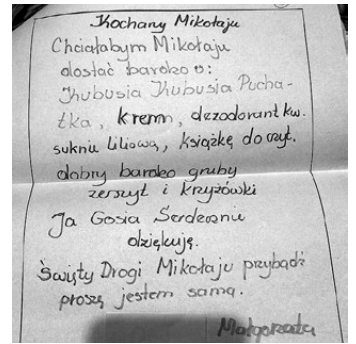 Kochany Mikołaju
Chciałabym Mikołaju
dostać bardzo o:
Kubusia Kubusia Pucha-
tka, krem, dezodorant kw.
suknu liliową, książkę do czyt.
dobry bardzo gruby
zerszyt i krzyżówki
Ja Gosia Serdecznu
dziękuję.
Święty Drogi Mikołaju przybądź
proszę jestem samą.
Małgorzata